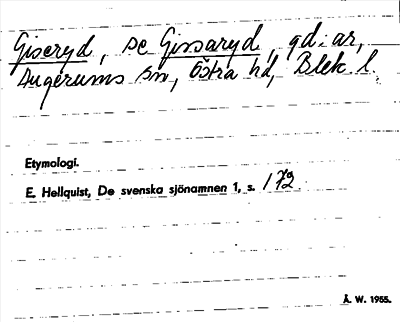 Giseryd, se Gissaryd, gd: ar,
Augerums sn, Östra hd, Blek. l.
Etymologi.
E. Hellquist, De svenska sjönamnen 1, s. 172.
Å. W. 1955.